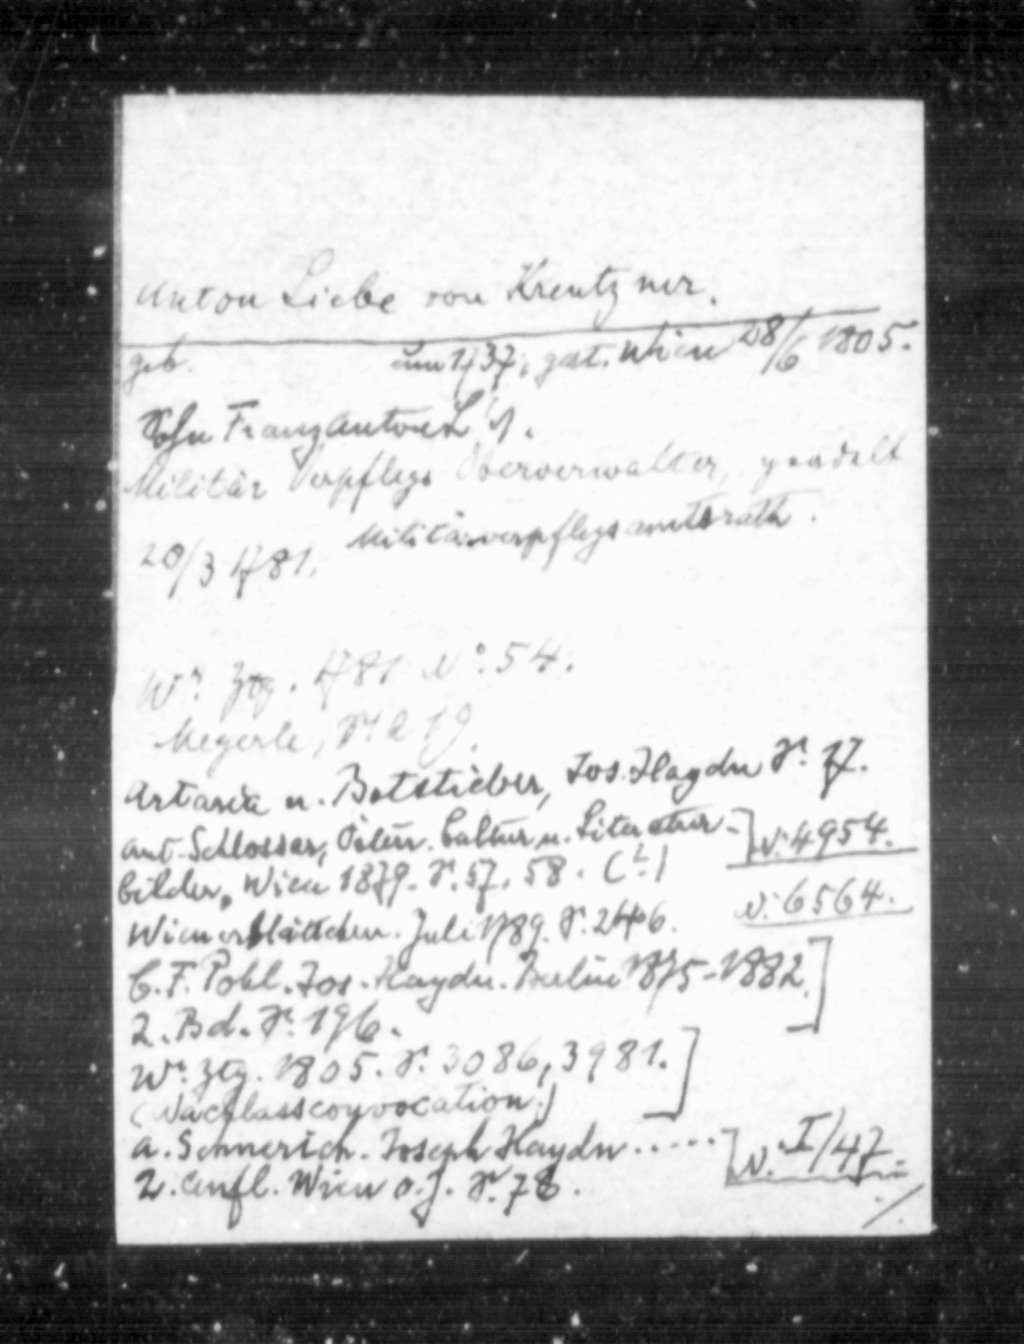 Anton Liebe von Kreutzner.
geb. um 1737, gest. Wien 28/6 1805.
Sohn Franz Anton L's.
Militär Verpflegs Oberverwalter, geadelt
20/3 1781. Militärverpflegsamtsrath.
Wr. Ztg. 1781 No. 54.
Megerle, S. 219.
Artaria u. Botstieber, Jos. Haydn S. 17.
Ant. Schlosser, Österr. Cultur u. Literatur-
bilder, Wien 1879. S. 57, 58. (L.) N. 4954.
Wienerblättchen. Juli 1789. S. 246. N. 6564.
C. F. Pohl. Jos. Haydn. Berlin 1875-1882.
2. Bd. S. 196.
Wr. Ztg. 1805. S. 3086, 3981.
(Nachlassconvocation.)
A. Schnerich. Joseph Haydn ..... N. I/47.
2. Aufl. Wien o. J. S. 78.